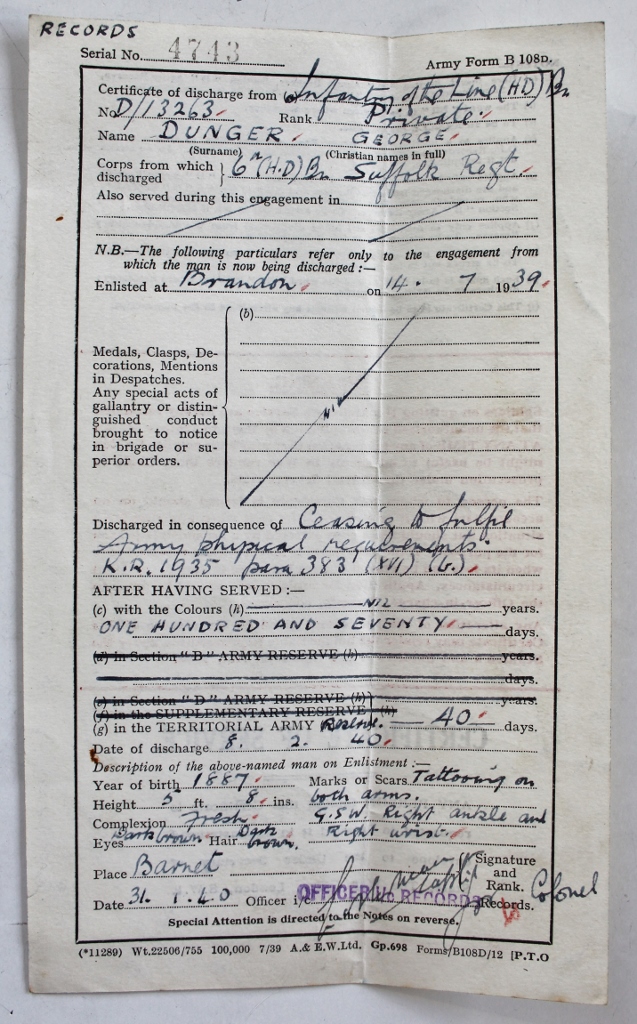 RECORDS
Serial No. 4743
Army Form B 108D.
Certificate of discharge from (a) Infantry of the Line (HD) Bn
No. D/13263. Rank Private.
Name DUNGER. GEORGE.
(Surname) (Christian names in full)
Corps from which discharged } 6th (H.D) Bn Suffolk Regt.
Also served during this engagement in
N.B.—The following particulars refer only to the engagement from
which the man is now being discharged :—
Enlisted at Brandon. on 14. 7 1939.
(b)
Medals, Clasps, De-
corations, Mentions
in Despatches.
Any special acts of
gallantry or distin-
guished conduct
brought to notice
in brigade or su-
perior orders.
Nil
Discharged in consequence of Ceasing to fulfil
Army physical requirements.
K.R. 1935 para 383 (XVI) (b.).
AFTER HAVING SERVED :—
(c) with the Colours (h) NIL years.
ONE HUNDRED AND SEVENTY. days.
(d) in Section "B" ARMY RESERVE (h) years.
days.
(e) in Section "D" ARMY RESERVE (h) years.
(f) in the SUPPLEMENTARY RESERVE (h)
(g) in the TERRITORIAL ARMY Reserve. — 40. days.
Date of discharge 8. 2. 40.
Description of the above-named man on Enlistment :—
Year of birth 1887. Marks or Scars Tattooing on
Height 5 ft. 8 ins. both arms.
Complexion Fresh. G.S.W. Right ankle and
Eyes Dark brown Hair Dark brown. Right wrist.
Place Barnet Signature and Rank. Colonel
Date 31. 1. 40 Officer i/c Records.
OFFICER i/c RECORDS
Special Attention is directed to the Notes on reverse.
(*11289) Wt.22506/755 100,000 7/39 A.& E.W.Ltd. Gp.698 Forms/B108D/12 [P.T.O